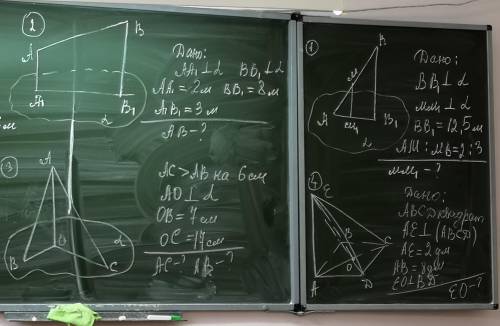 2
A
B
A₁
B₁
α
м
Дано:
AA₁ ⊥ α BB₁ ⊥ α
AA₁ = 2м BB₁ = 8м
A₁B₁ = 3м
AB - ?
3
A
B
O
C
α
AC > AB на 6 см
AO ⊥ α
OB = 7 см
OC = 17 см
AC - ? AB - ?
1
B
M
A
M₁
B₁
α
Дано:
BB₁ ⊥ α
MM₁ ⊥ α
BB₁ = 12,5 м
AM : MB = 2 : 3
MM₁ - ?
4
E
B
C
O
A
D
Дано:
ABCD квадрат
AE ⊥ (ABCD)
AE = 2 дм
AB = 8 дм
EO ⊥ BD
EO - ?